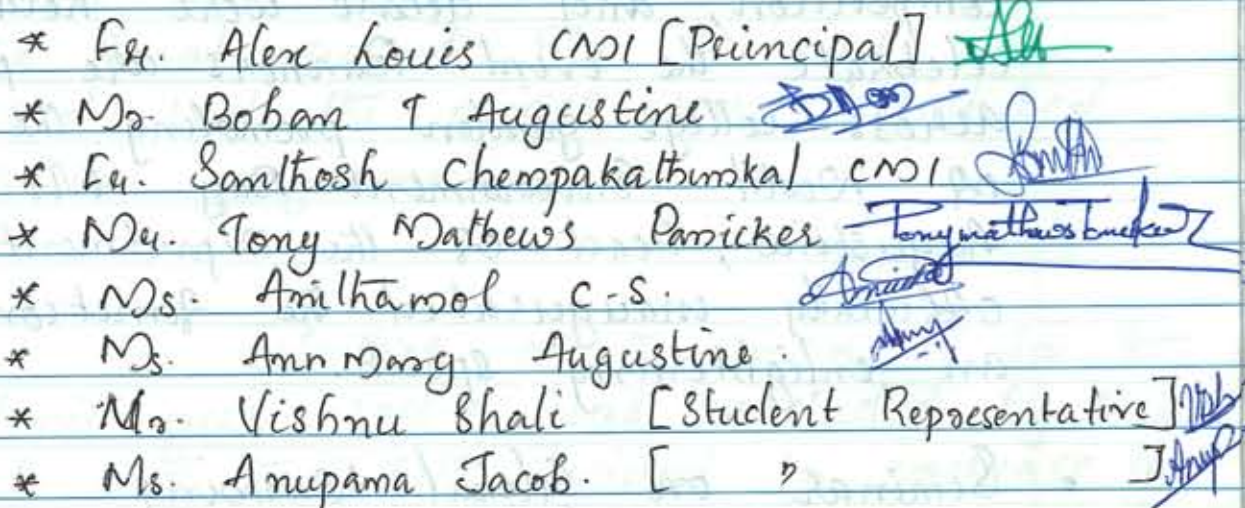 * Fr. Alex Louis CMI [Principal]
* Mr. Boban T Augustine
* Fr. Santhosh Chempakathinkal CMI
* Mr. Tony Mathews Panicker Tonymathewspanicker
* Ms. Anithamol C.S.
* Ms. Ann Mary Augustine.
* Mr. Vishnu Bhali [Student Representative]
* Ms. Anupama Jacob. [ " ] Anup